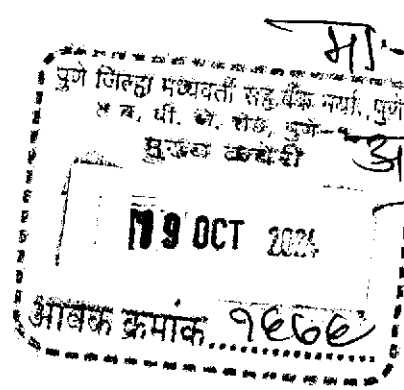 मा -
पुणे जिल्हा मध्यवर्ती सह. बँक मर्या., पुणे
रोड, पुणे-
मुख्य कचेरी
अ
9 OCT 2024
आवक क्रमांक